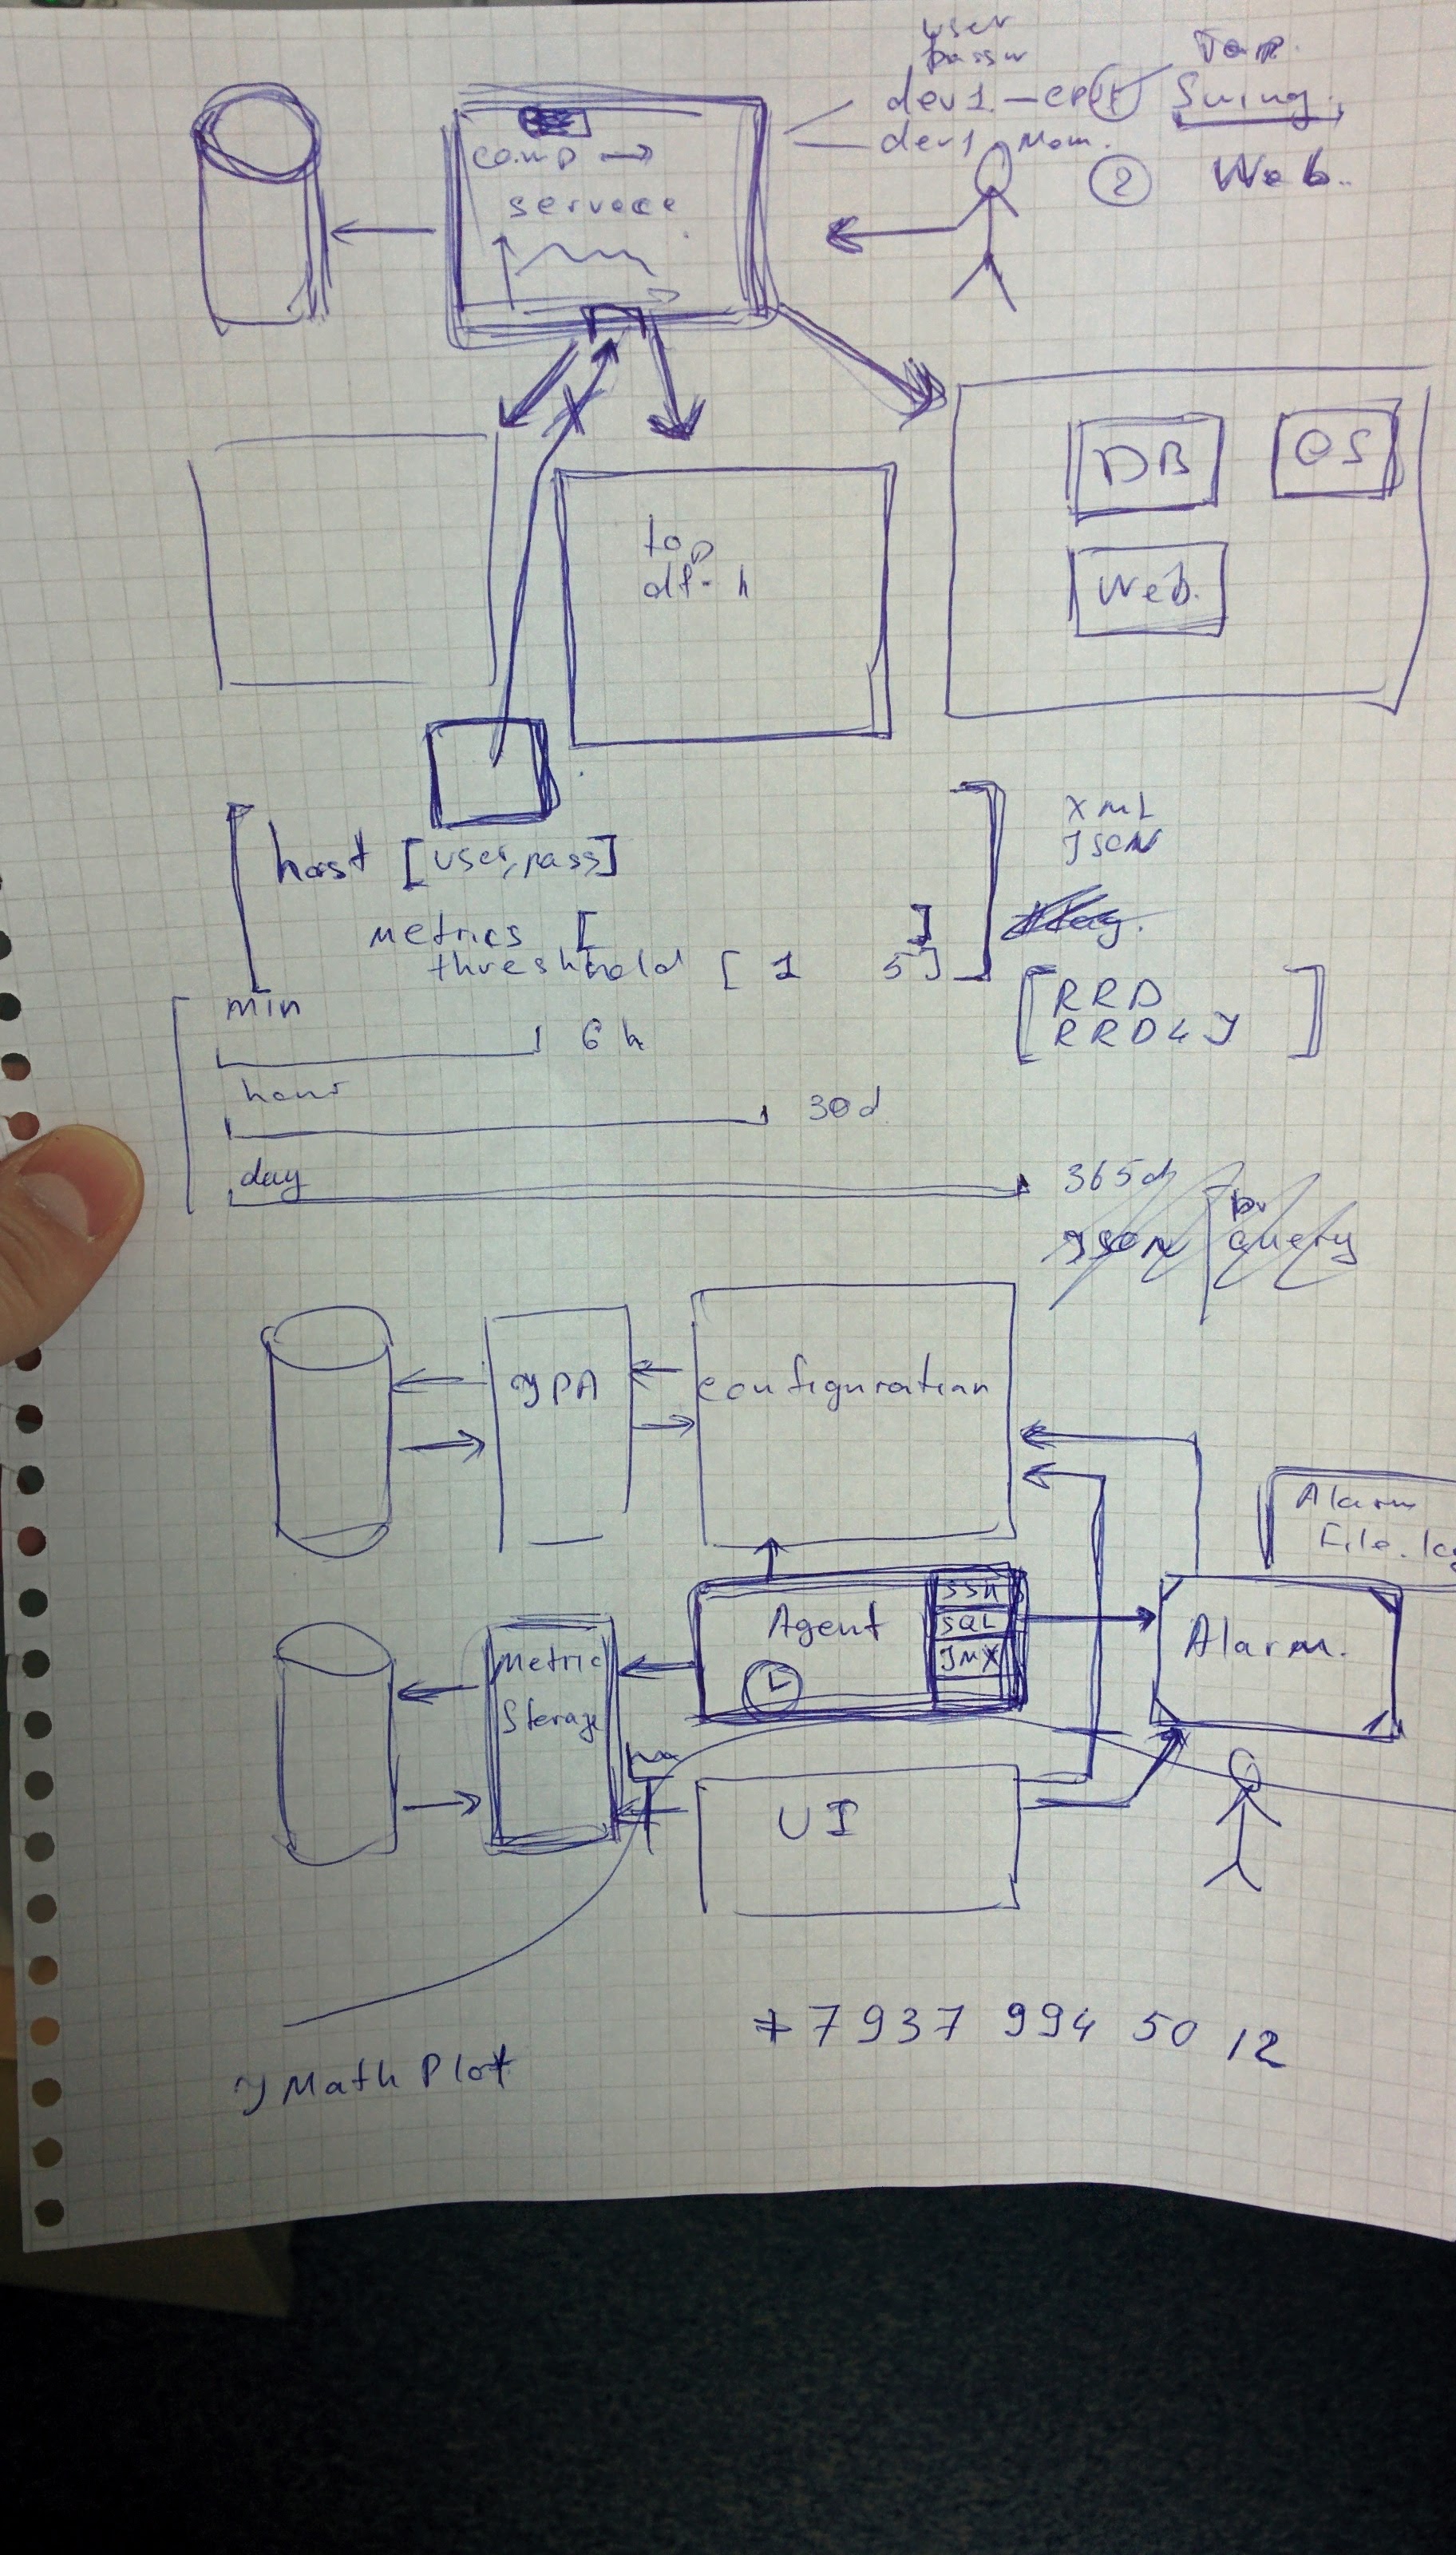 user
passw
dev1 — CPU
dev1 Mem.
① Swing.
② Web.
comp →
service
DB
OS
Web.
top
df-h
host [user, pass]
metrics [ ]
threshhold [ 1 5 ]
XML
JSON
RRD
RRD4J
min
6 h
hour
30d
day
365d
JSON
query
JPA
configuration
Alarm
File.log
Agent
SSH
SQL
JMX
Alarm.
Metric
Storage
UI
+7 937 994 50 12
JMathPlot